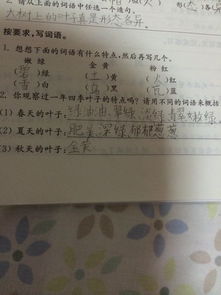 2.从上面的词语中任选一个造句。
大树上的叶子真是形态各异
按要求,写词语。
1. 想想下面的词语有什么特点,然后再写几个。
嫩绿 金黄 粉红
(碧)绿 (土)黄 (火)红
(雪)白 (乌)黑 (瓦)蓝
2. 你观察过一年四季叶子的特点吗?请用不同的词语来概括
(1) 春天的叶子: 绿油油、翠绿、浓绿、青翠、嫩绿
(2) 夏天的叶子: 肥 深绿 郁郁葱葱
(3) 秋天的叶子: 金黄